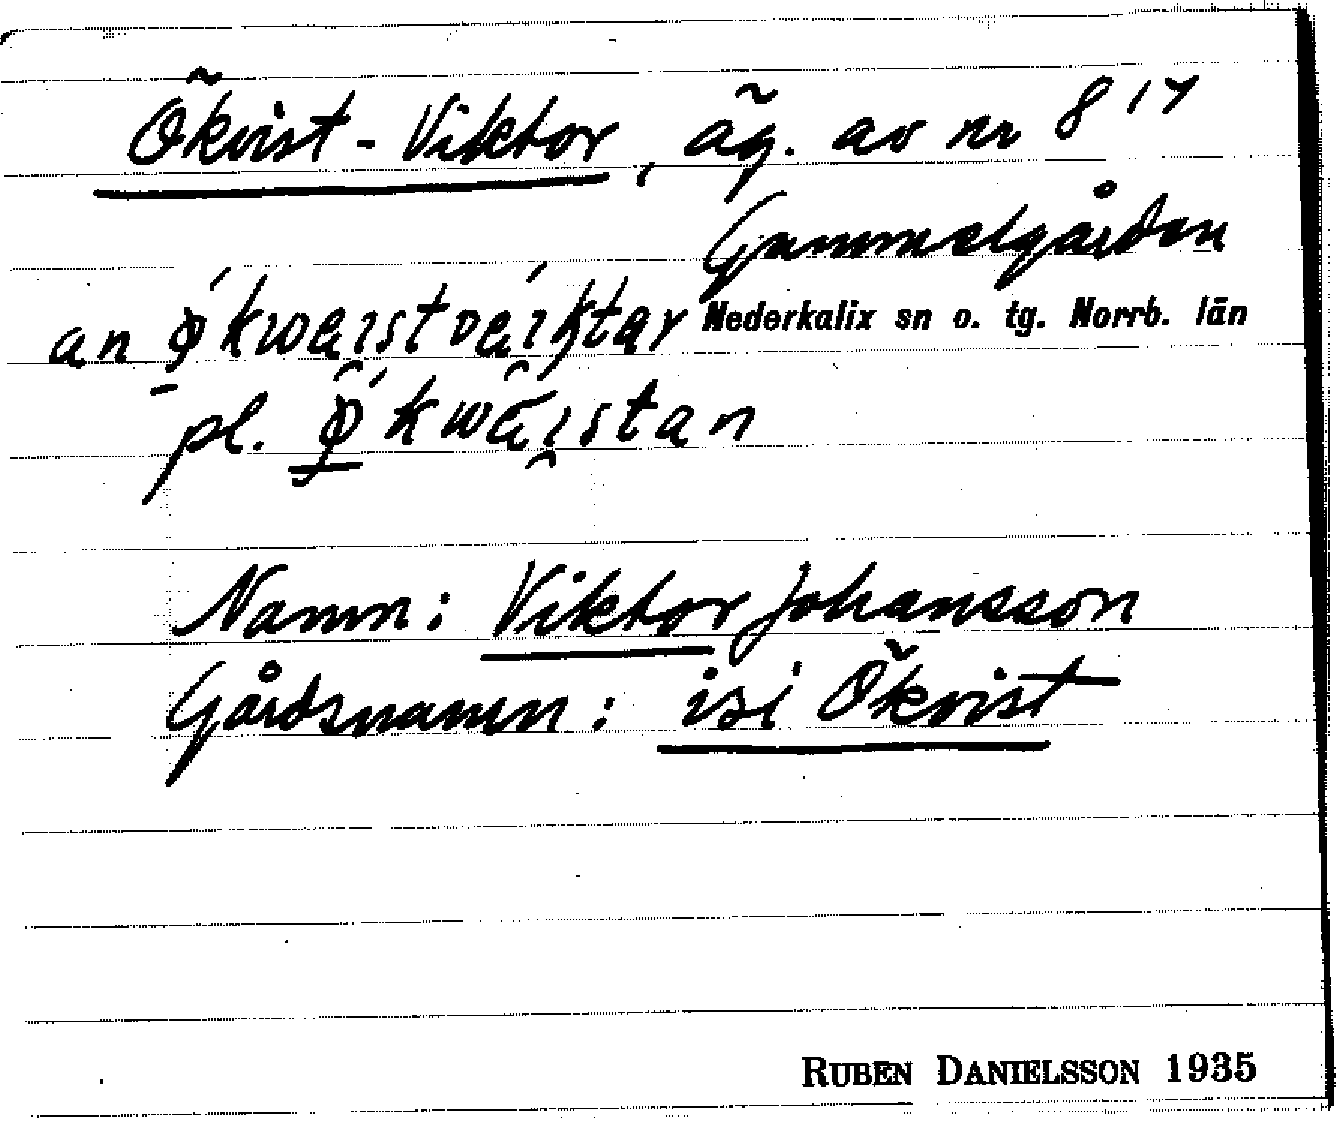 Ökvist-Viktor, äg. av nr 8¹⁷
Gammelgården
Nederkalix sn o. tg. Norrb. län
an ǿkwaıstváıktar
pl. ǿkwaıstan
Namn: Viktor Johansson
Gårdsnamn: isi Ökvist
RUBEN DANIELSSON 1935